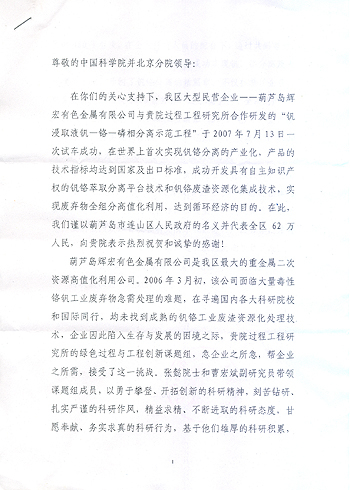 尊敬的中国科学院并北京分院领导:
在你们的关心支持下，我区大型民营企业——葫芦岛辉
宏有色金属有限公司与贵院过程工程研究所合作研发的“钒
浸取液钒—铬—磷相分离示范工程”于 2007 年 7 月 13 日一
次试车成功，在世界上首次实现钒铬分离的产业化，产品的
技术指标均达到国家及出口标准，成功开发具有自主知识产
权的钒铬萃取分离平台技术和钒铬废渣资源化集成技术，实
现废弃物全组分高值化利用，达到循环经济的目的。在此，
我们谨以葫芦岛市连山区人民政府的名义并代表全区 62 万
人民，向贵院表示热烈祝贺和诚挚的感谢!
葫芦岛辉宏有色金属有限公司是我区最大的重金属二次
资源高值化利用公司。2006 年 3 月初，该公司面临大量毒性
铬钒工业废弃物急需处理的难题，在寻遍国内各大科研院校
和国际同行，均未找到成熟的钒铬工业废渣资源化处理技
术，企业因此陷入生存与发展的困境之际，贵院过程工程研
究所的绿色过程与工程创新课题组，急企业之所急，帮企业
之所需，接受了这一挑战。张懿院士和曹宏斌副研究员带领
课题组成员，以勇于攀登、开拓创新的科研精神，刻苦钻研、
扎实严谨的科研作风，精益求精、不断进取的科研态度，甘
愿奉献、务实求真的科研行为，基于他们雄厚的科研积累，
1